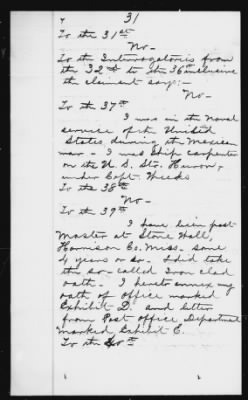 31
To the 31st
No -
To the Interrogatories from
the 32d to the 36th inclusive
the claimant says: -
No -
To the 37th
I was in the Naval
service of the United
States during the Mexican
war - I was Ship carpenter
on the U. S. Str.
under Capt.
To the 38th
No -
To the 39th
I have been post
Master at Stone Wall,
Harrison Co. Miss. some
4 years or so. I did take
the so-called Iron clad
oath. I hereto annex my
oath of office marked
Exhibit D. and letter
from Post office Department
marked Exhibit E.
To the 40th